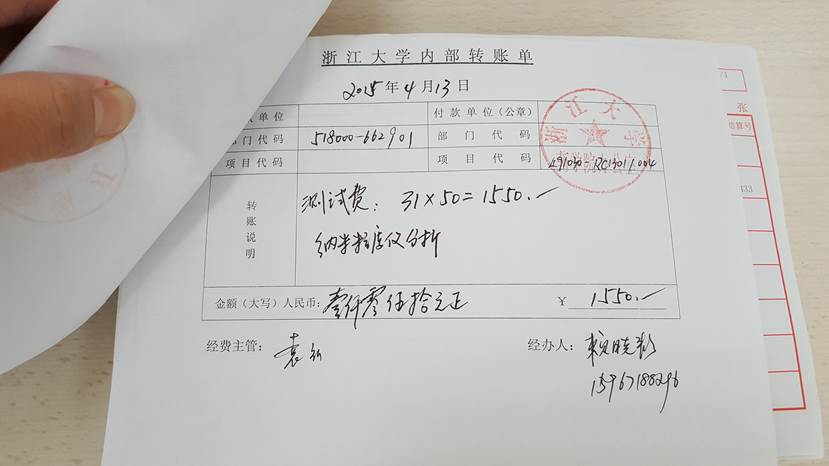 浙江大学内部转账单
2015年4月13日
款单位 付款单位（公章）
部门代码 518000-662901 部门代码
项目代码 项目代码 491030-RC13011.004
转账说明
测试费：31×50=1550.—
纳米粒度仪分析
金额（大写）人民币：壹仟零伍拾元正 ￥1550.—
经费主管： 经办人：
15967188296
浙江大学
张
433